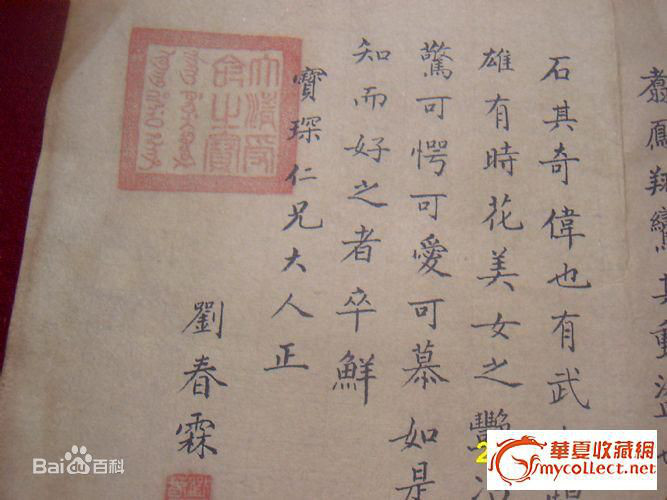 翥鳳翔鸞其動盪也
石其奇偉也有武
雄有時花美女之艷冶
驚可愕可愛可慕如是
知而好之者卒鮮
寶琛仁兄大人正
劉春霖
大清受命之寶
Bai百科
華夏收藏網
mycollect.net